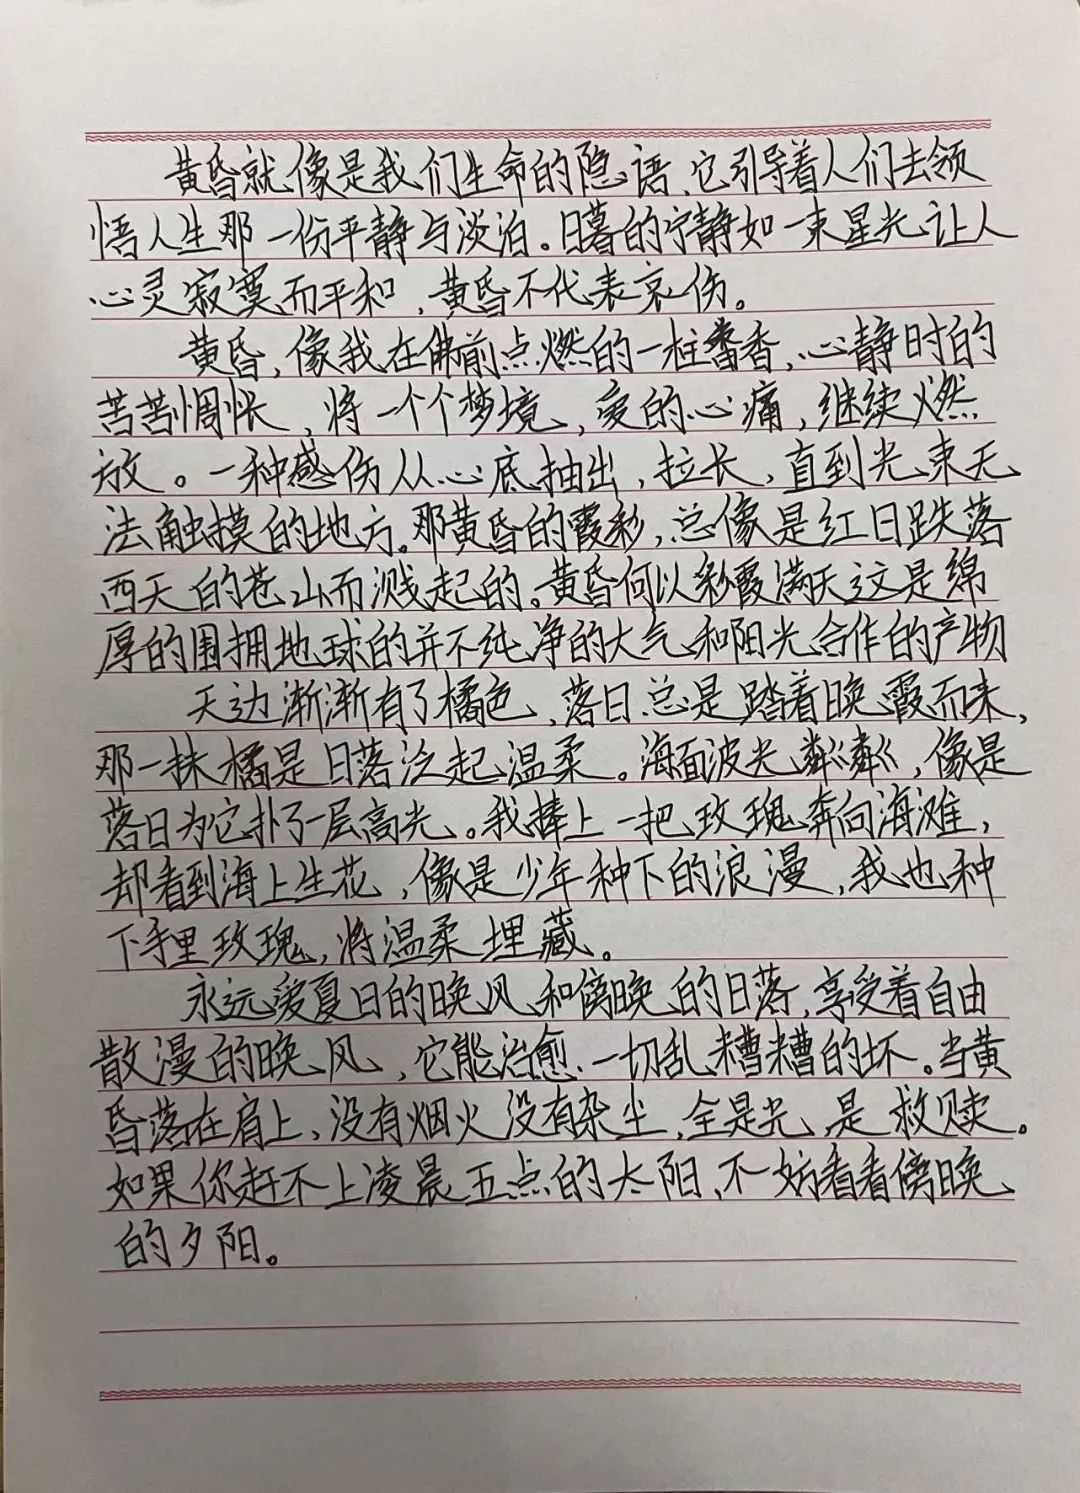 黄昏就像是我们生命的隐语、它引导着人们去领
悟人生那一份平静与淡泊。日暮的宁静如一束星光让人
心灵寂寞而平和，黄昏不代表哀伤。
黄昏，像我在佛前点燃的一柱香，心静时的
苦苦惆怅，将一个个梦境、爱的心痛，继续燃
放。一种感伤从心底抽出，拉长，直到光束无
法触摸的地方。那黄昏的霞彩，总像是红日跌落
西天的苍山而溅起的。黄昏何以彩霞满天这是绵
厚的围拥地球的并不纯净的大气和阳光合作的产物
天边渐渐有了橘色，落日总是踏着晚霞而来，
那一抹橘是日落泛起温柔。海面波光粼粼，像是
落日为它扑了一层高光。我捧上一把玫瑰奔向海滩，
却看到海上生花，像是少年种下的浪漫，我也种
下手里玫瑰，将温柔埋藏。
永远爱夏日的晚风和傍晚的日落，享受着自由
散漫的晚风，它能治愈一切乱糟糟的坏。当黄
昏落在肩上，没有烟火没有杂尘，全是光，是救赎。
如果你赶不上凌晨五点的太阳、不妨看看傍晚
的夕阳。